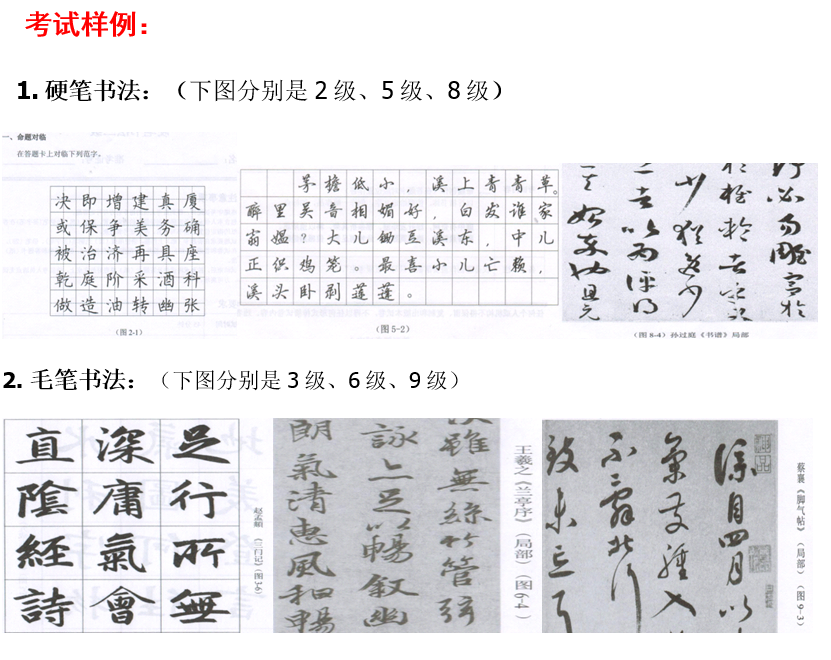 考试样例：
1. 硬笔书法：（下图分别是 2 级、5 级、8 级）
一、命题对临
在答题卡上对临下列范字。
决即增建真厦
或保争美务确
被治济再具座
乾庭阶采酒科
做造油转幽张
（图2-1）
茅檐低小，溪上青青草。
醉里吴音相媚好，白发谁家
翁媪？大儿锄豆溪东，中儿
正织鸡笼。最喜小儿亡赖，
溪头卧剥莲蓬。
（图5-2）
（图8-4）孙过庭《书谱》局部
2. 毛笔书法：（下图分别是 3 级、6 级、9 级）
足行所無
深庸氣會
直陰經詩
赵孟頫《三门记》（图3-6）
雖無絲竹管弦
詠亦足以暢叙幽
朗氣清惠風和暢
王羲之《兰亭序》（局部）（图6-4）
自四月以
氣發腫入
不辭北行
蔡襄《脚气帖》（局部）（图9-3）